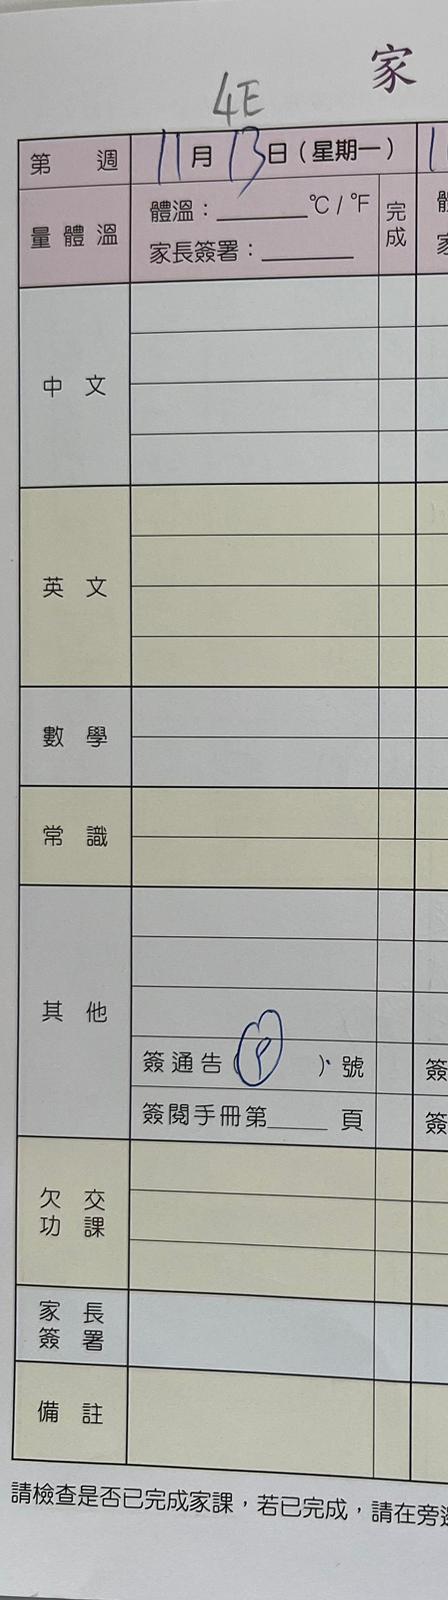 4E
家
第 週 11月13日（星期一）
量體溫 體溫：______℃/℉ 完成
家長簽署：______
中 文
英 文
數 學
常 識
其 他
簽通告（ ）號
簽閱手冊第____ 頁
簽
簽
欠 交
功 課
家 長
簽 署
備 註
請檢查是否已完成家課，若已完成，請在旁